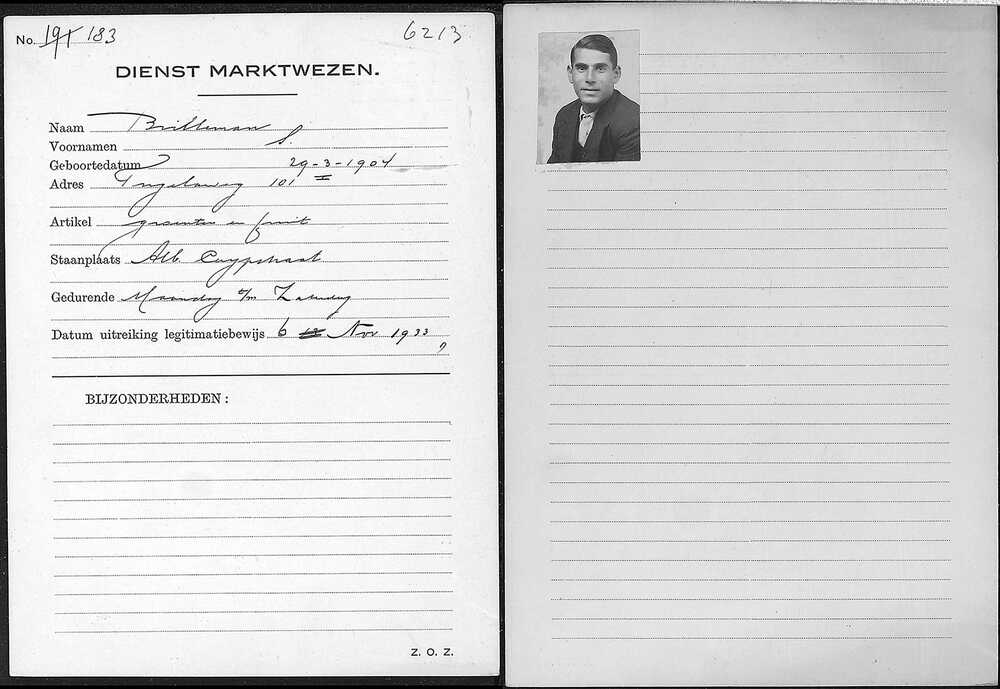 No. 191 183 6213
DIENST MARKTWEZEN.
Naam Brilleman
Voornamen S.
Geboortedatum 29-3-1904
Adres 101 II
Artikel groenten en fruit
Staanplaats Alb. Cuypstraat
Gedurende Maandag t/m Zaterdag
Datum uitreiking legitimatiebewijs 6 Nov 1933
BIJZONDERHEDEN:
Z. O. Z.